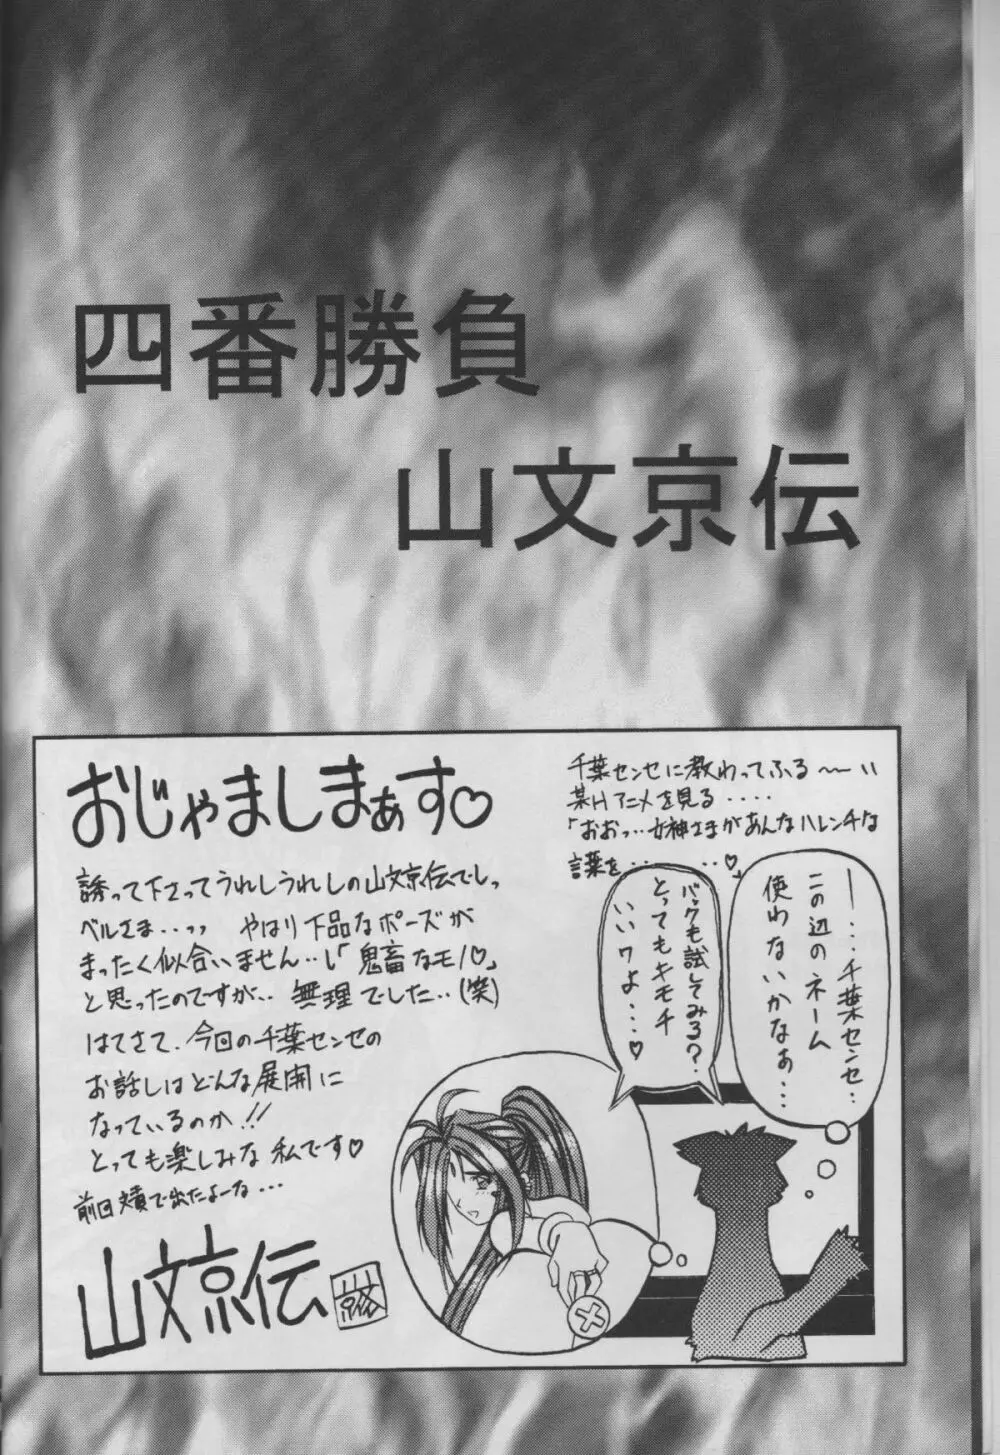 四番勝負
山文京伝
おじゃましまぁす♡
誘って下さってうれしうれしの山文京伝でしっ
ベルさま・・・っっ やはり下品なポーズが
まったく似合いません・・・し「鬼畜なモノ♡」
と思ったのですが・・ 無理でした・・(笑)
はてさて、今回の千葉センセの
お話しはどんな展開に
なっているのか!!
とっても楽しみな私です♡
前回文責で出たよーな・・・
山文京伝
千葉センセに教わってふる〜〜い
某Hアニメを見る・・・・
「おおっ・・・女神さまがあんなハレンチな
言葉を・・・・・・・♡」
ー・・・千葉センセ・・
この辺のネーム
使わないかなぁ・・・
バックも試してみる?・・
とってもキモチ
いいワよ・・・♡